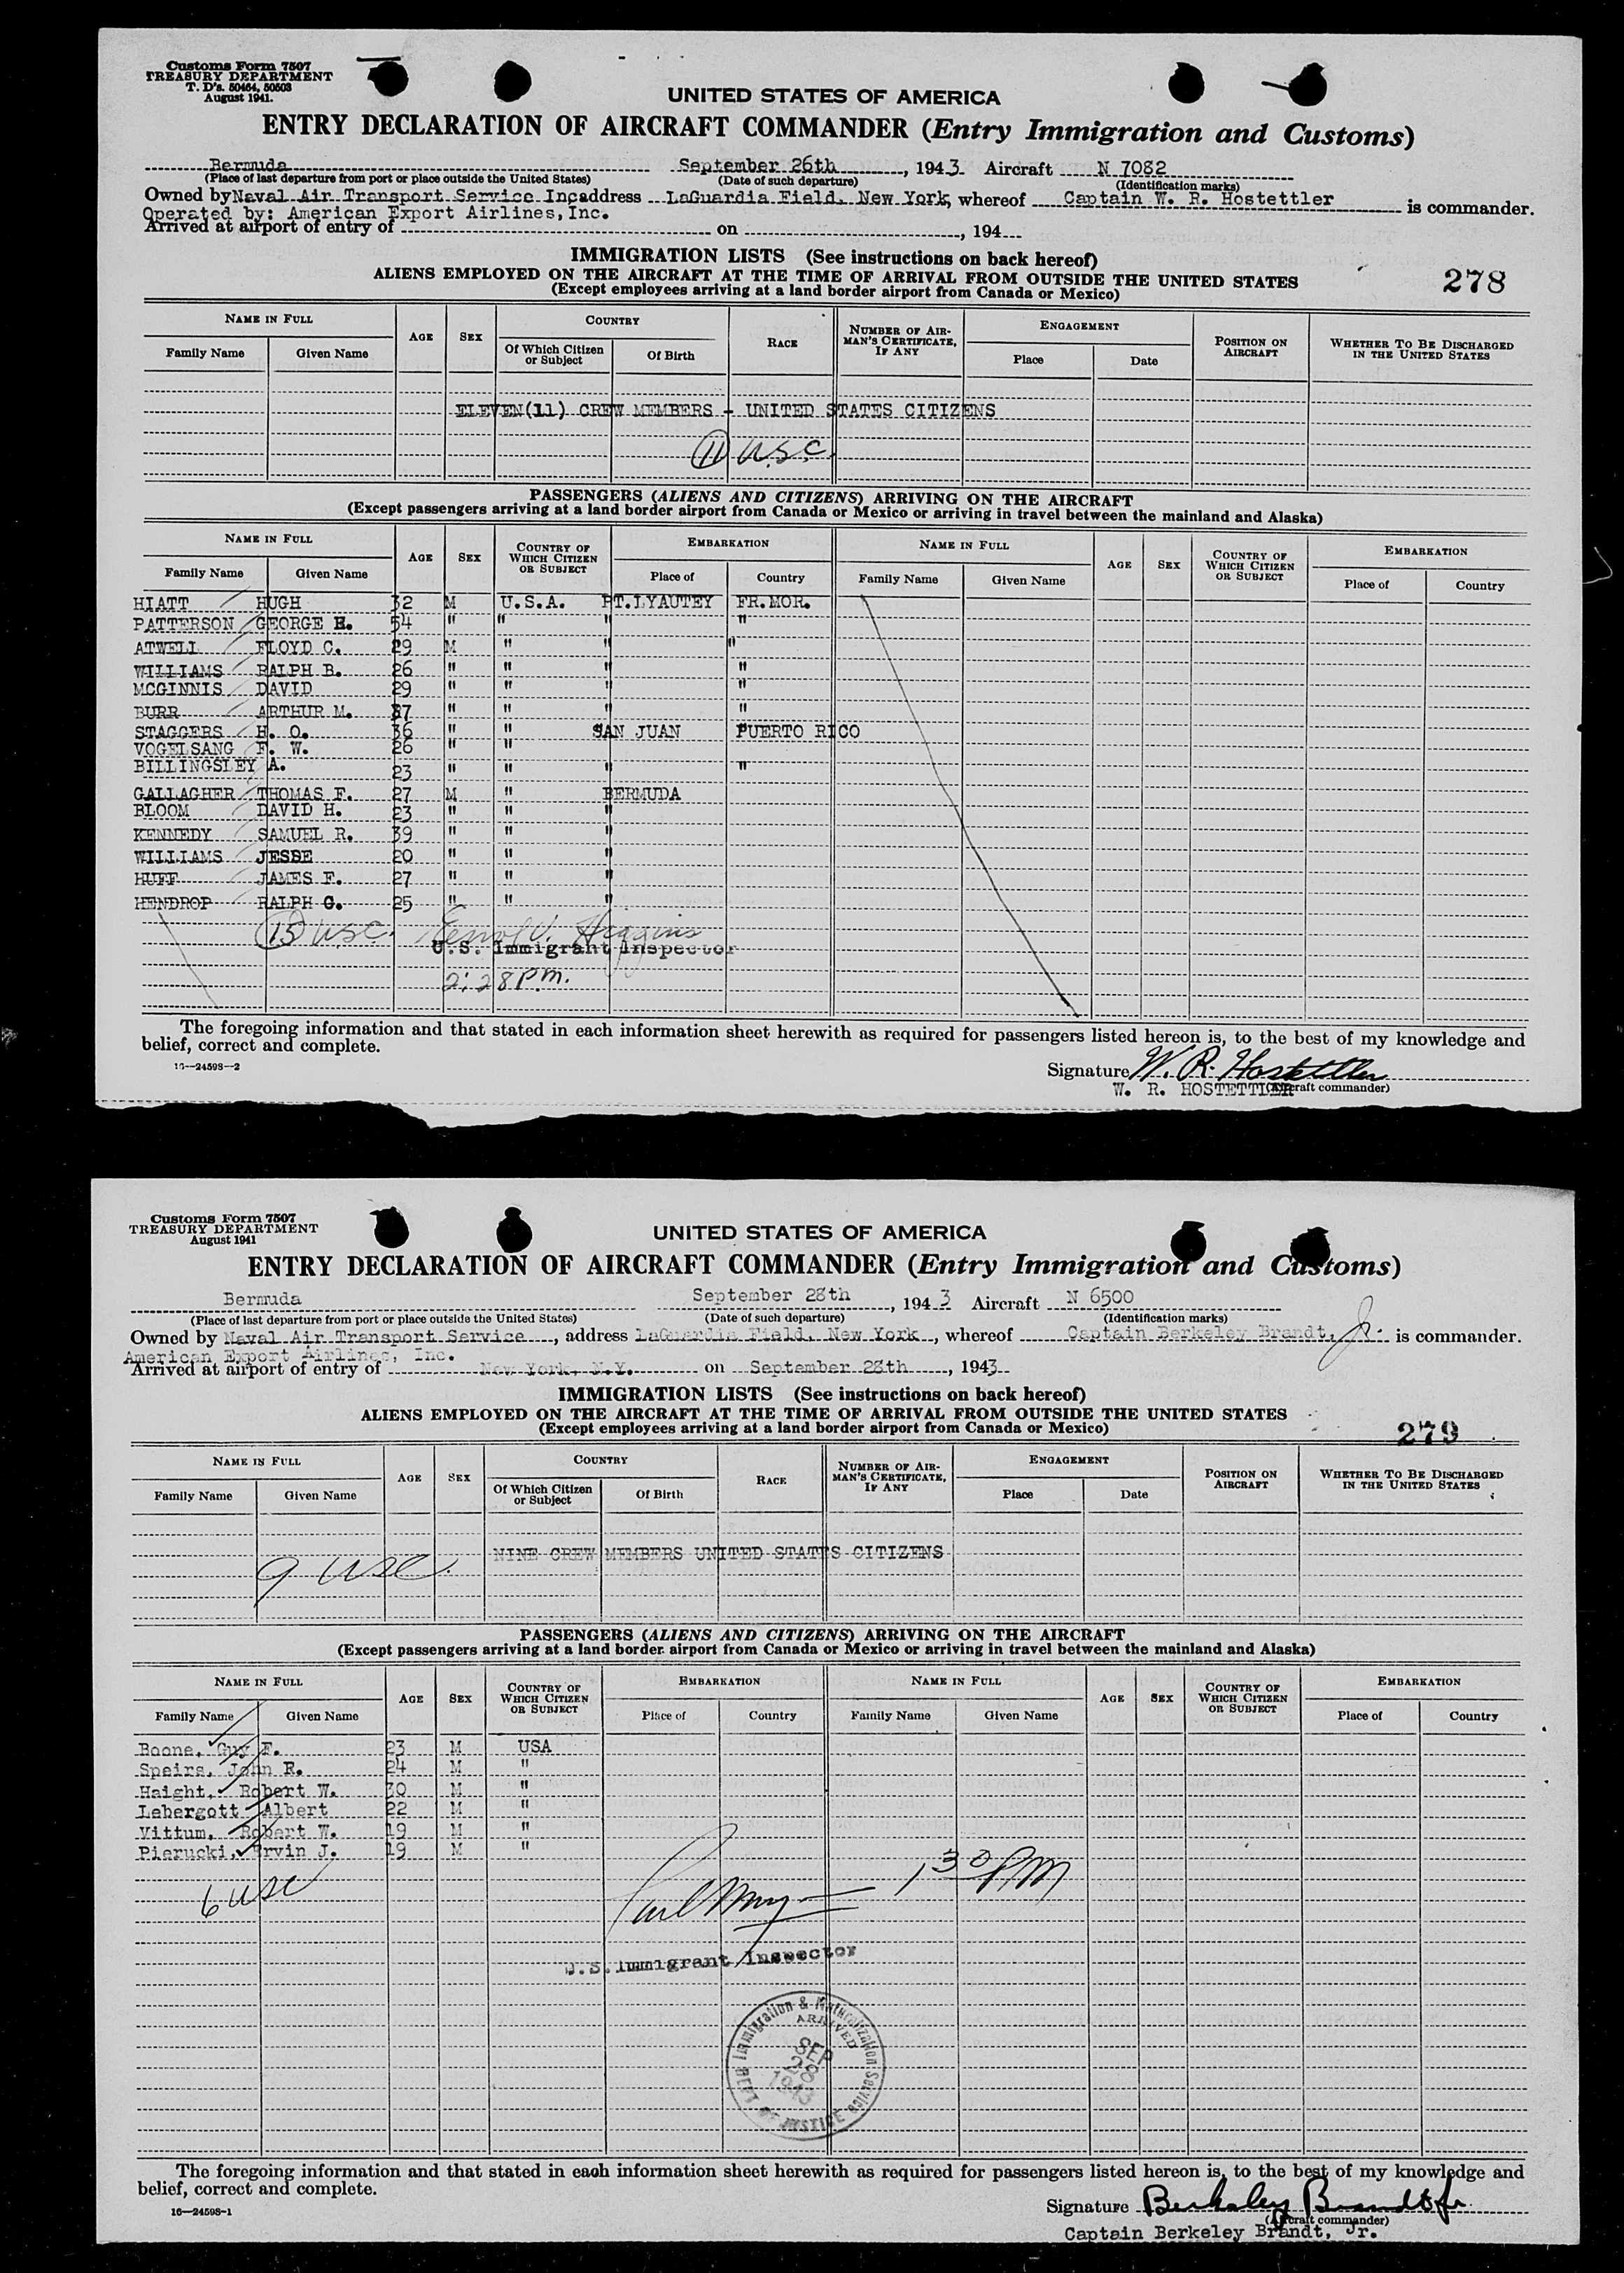 Customs Form 7507
TREASURY DEPARTMENT
T. D's. 50464, 50503
August 1941.
UNITED STATES OF AMERICA
ENTRY DECLARATION OF AIRCRAFT COMMANDER (Entry Immigration and Customs)
Bermuda September 26th, 1943 Aircraft N 7082
(Place of last departure from port or place outside the United States) (Date of such departure) (Identification marks)
Owned by Naval Air Transport Service Inc address LaGuardia Field, New York, whereof Captain W. R. Hostettler is commander.
Operated by: American Export Airlines, Inc.
Arrived at airport of entry of on , 194
IMMIGRATION LISTS (See instructions on back hereof)
ALIENS EMPLOYED ON THE AIRCRAFT AT THE TIME OF ARRIVAL FROM OUTSIDE THE UNITED STATES
(Except employees arriving at a land border airport from Canada or Mexico)
278
NAME IN FULL AGE SEX COUNTRY RACE NUMBER OF AIRMAN'S CERTIFICATE, IF ANY ENGAGEMENT POSITION ON AIRCRAFT WHETHER TO BE DISCHARGED IN THE UNITED STATES
Family Name Given Name Of Which Citizen or Subject Of Birth Place Date
ELEVEN(11) CREW MEMBERS - UNITED STATES CITIZENS
11 U.S.C.
PASSENGERS (ALIENS AND CITIZENS) ARRIVING ON THE AIRCRAFT
(Except passengers arriving at a land border airport from Canada or Mexico or arriving in travel between the mainland and Alaska)
NAME IN FULL AGE SEX COUNTRY OF WHICH CITIZEN OR SUBJECT EMBARKATION NAME IN FULL AGE SEX COUNTRY OF WHICH CITIZEN OR SUBJECT EMBARKATION
Family Name Given Name Place of Country Family Name Given Name Place of Country
HIATT HUGH 32 M U.S.A. PT.LYAUTEY FR.MOR.
PATTERSON GEORGE H. 54 " " " "
ATWELL FLOYD C. 29 M " " "
WILLIAMS RALPH B. 26 " " " "
MCGINNIS DAVID 29 " " " "
BURR ARTHUR M. 37 " " " "
STAGGERS H. O. 36 " " SAN JUAN PUERTO RICO
VOGELSANG F. W. 26 " "
BILLINGSLEY A. 23 " " " "
GALLAGHER THOMAS F. 27 M " BERMUDA
BLOOM DAVID H. 23 " " "
KENNEDY SAMUEL R. 39 " " "
WILLIAMS JESSE 20 " " "
HUFF JAMES F. 27 " " "
HENDROP RALPH G. 25 " " "
15 USC. Higgins
U.S. Immigrant Inspector
2:28 P.M.
The foregoing information and that stated in each information sheet herewith as required for passengers listed hereon is, to the best of my knowledge and
belief, correct and complete.
16—24598—2
Signature W. R. Hostettler
W. R. HOSTETTLER (Aircraft commander)
Customs Form 7507
TREASURY DEPARTMENT
August 1941
UNITED STATES OF AMERICA
ENTRY DECLARATION OF AIRCRAFT COMMANDER (Entry Immigration and Customs)
Bermuda September 28th, 1943 Aircraft N 6500
(Place of last departure from port or place outside the United States) (Date of such departure) (Identification marks)
Owned by Naval Air Transport Service, address LaGuardia Field, New York, whereof Captain Berkeley Brandt, Jr. is commander.
American Export Airlines, Inc.
Arrived at airport of entry of New York, N.Y. on September 28th, 1943
IMMIGRATION LISTS (See instructions on back hereof)
ALIENS EMPLOYED ON THE AIRCRAFT AT THE TIME OF ARRIVAL FROM OUTSIDE THE UNITED STATES
(Except employees arriving at a land border airport from Canada or Mexico)
279
NAME IN FULL AGE SEX COUNTRY RACE NUMBER OF AIRMAN'S CERTIFICATE, IF ANY ENGAGEMENT POSITION ON AIRCRAFT WHETHER TO BE DISCHARGED IN THE UNITED STATES
Family Name Given Name Of Which Citizen or Subject Of Birth Place Date
NINE CREW MEMBERS UNITED STATES CITIZENS
9 USC.
PASSENGERS (ALIENS AND CITIZENS) ARRIVING ON THE AIRCRAFT
(Except passengers arriving at a land border airport from Canada or Mexico or arriving in travel between the mainland and Alaska)
NAME IN FULL AGE SEX COUNTRY OF WHICH CITIZEN OR SUBJECT EMBARKATION NAME IN FULL AGE SEX COUNTRY OF WHICH CITIZEN OR SUBJECT EMBARKATION
Family Name Given Name Place of Country Family Name Given Name Place of Country
Boone, Guy F. 23 M USA
Speirs, John R. 24 M "
Haight, Robert W. 30 M "
Lebergott Albert 22 M "
Vittum, Robert W. 19 M "
Pierucki, Ervin J. 19 M "
6 USC
1 30 PM
U.S. Immigrant Inspector
Immigration & Naturalization Service
ARRIVED
SEP
28
1943
DEPT OF JUSTICE
The foregoing information and that stated in each information sheet herewith as required for passengers listed hereon is, to the best of my knowledge and
belief, correct and complete.
16—24598-1
Signature Berkeley Brandt Jr.
(Aircraft commander)
Captain Berkeley Brandt, Jr.